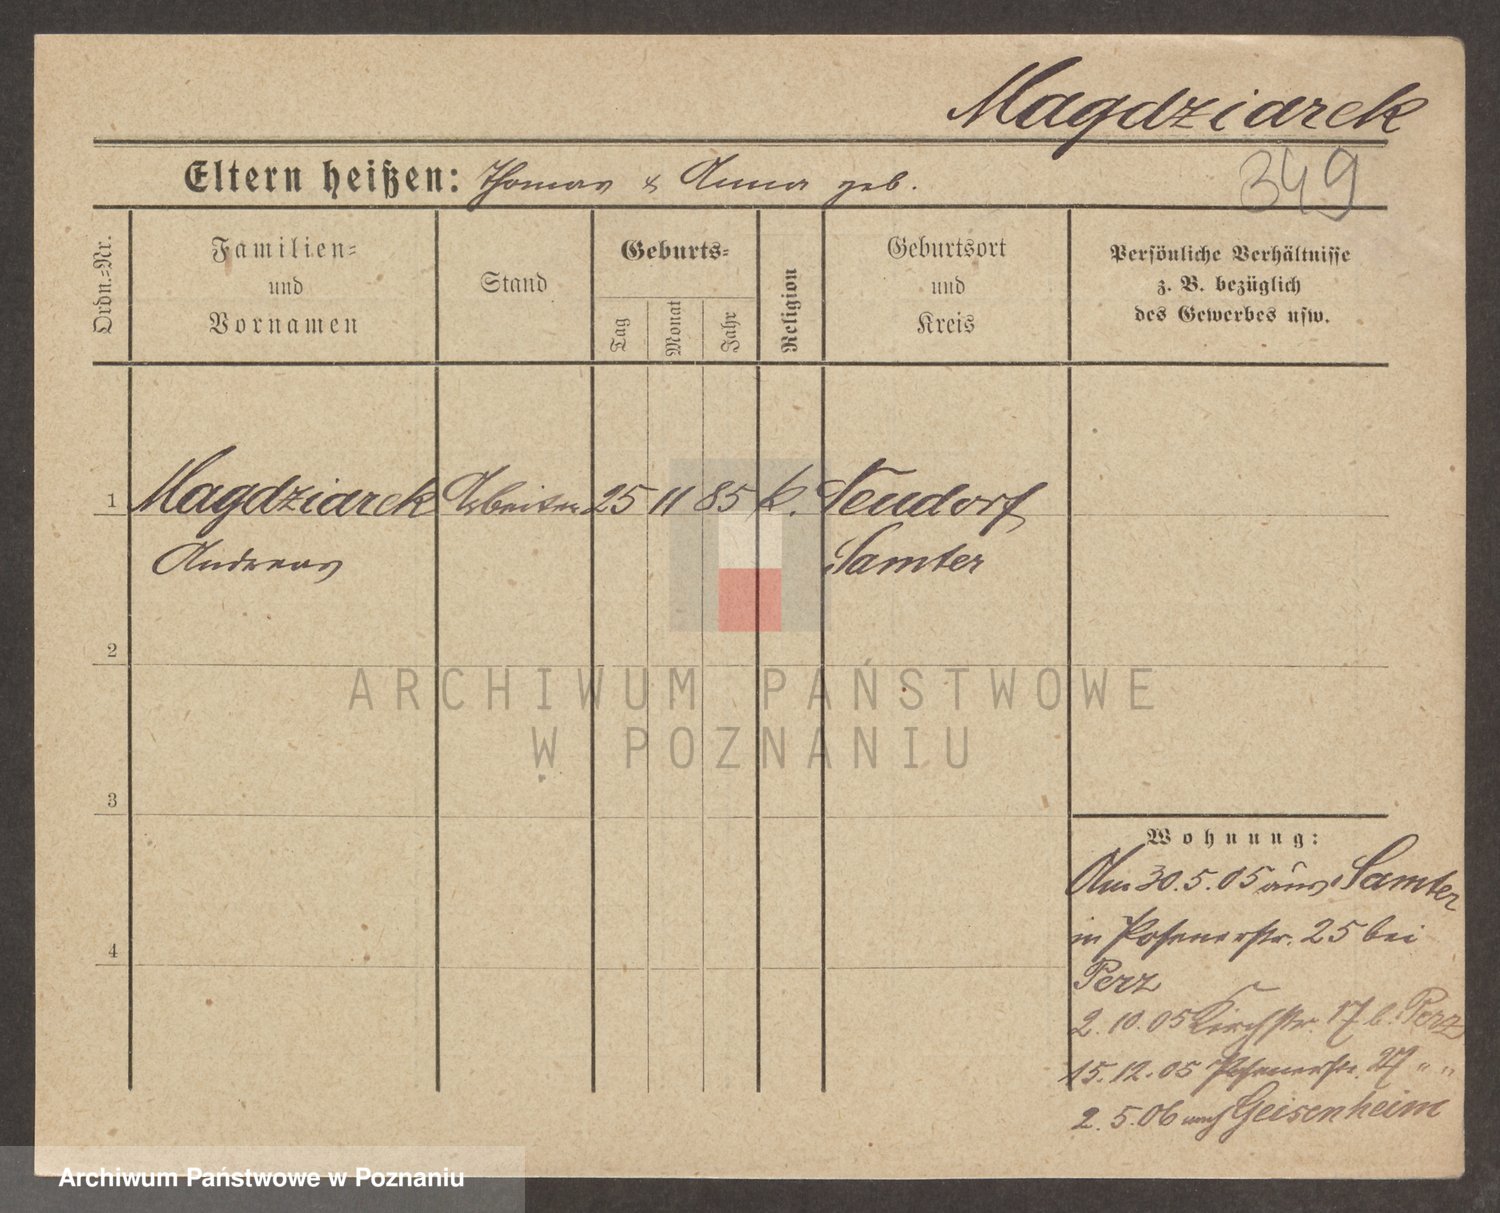 Magdziarek
349
Eltern heißen: Thomas & Anna geb.
Ordn.-Nr.
Familien-
und
Vornamen
Stand
Geburts-
Tag
Monat
Jahr
Religion
Geburtsort
und
Kreis
Persönliche Verhältnisse
z. B. bezüglich
des Gewerbes usw.
1 Magdziarek Arbeiter 25 11 85 k. Neudorf
Andreas Samter
2
ARCHIWUM PAŃSTWOWE
W POZNANIU
3
Wohnung:
Am 30.5.05 aus Samter
in Posenerstr. 25 bei
Perz
2.10.05 Kirchstr. 17 b. Perz
15.12.05 Posenerstr. 27 " "
2.5.06 nach Geisenheim
4
Archiwum Państwowe w Poznaniu